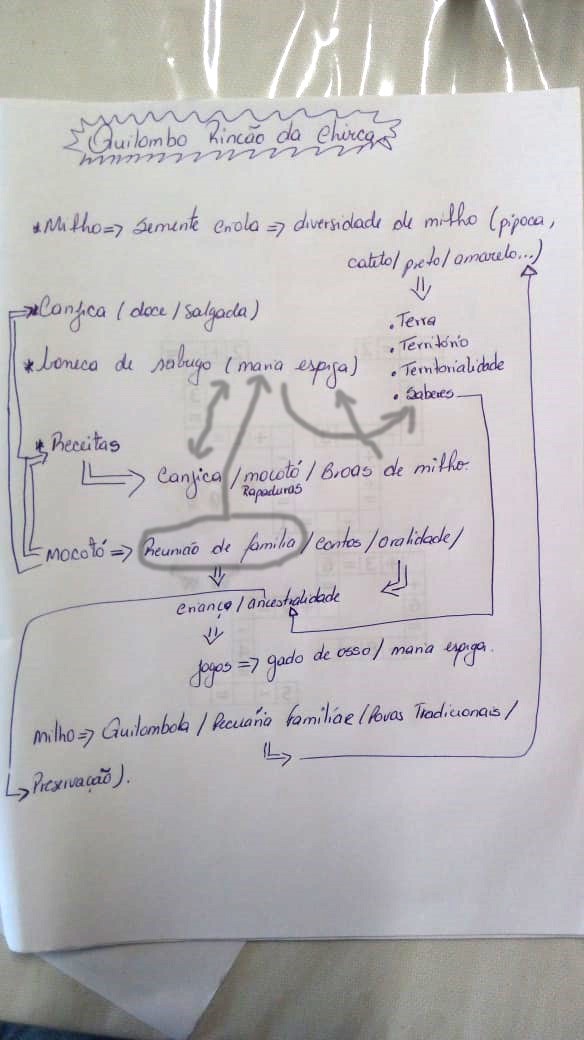 Quilombo Rincão da Chirca
* Milho => Semente criola => diversidade de milho (pipoca,
cateto/preto/amarelo...)
* Canjica (doce/salgada)
. Terra
. Território
* boneca de sabugo (maria espiga)
. Territorialidade
. Saberes
* Receitas
Canjica / mocotó / Broas de milho.
Rapaduras
Mocotó => Reunião de família / contos / oralidade /
criança / ancestralidade
jogos => gado de osso / maria espiga.
milho => Quilombola / Pecuária familiar / Povos Tradicionais /
Preservação).